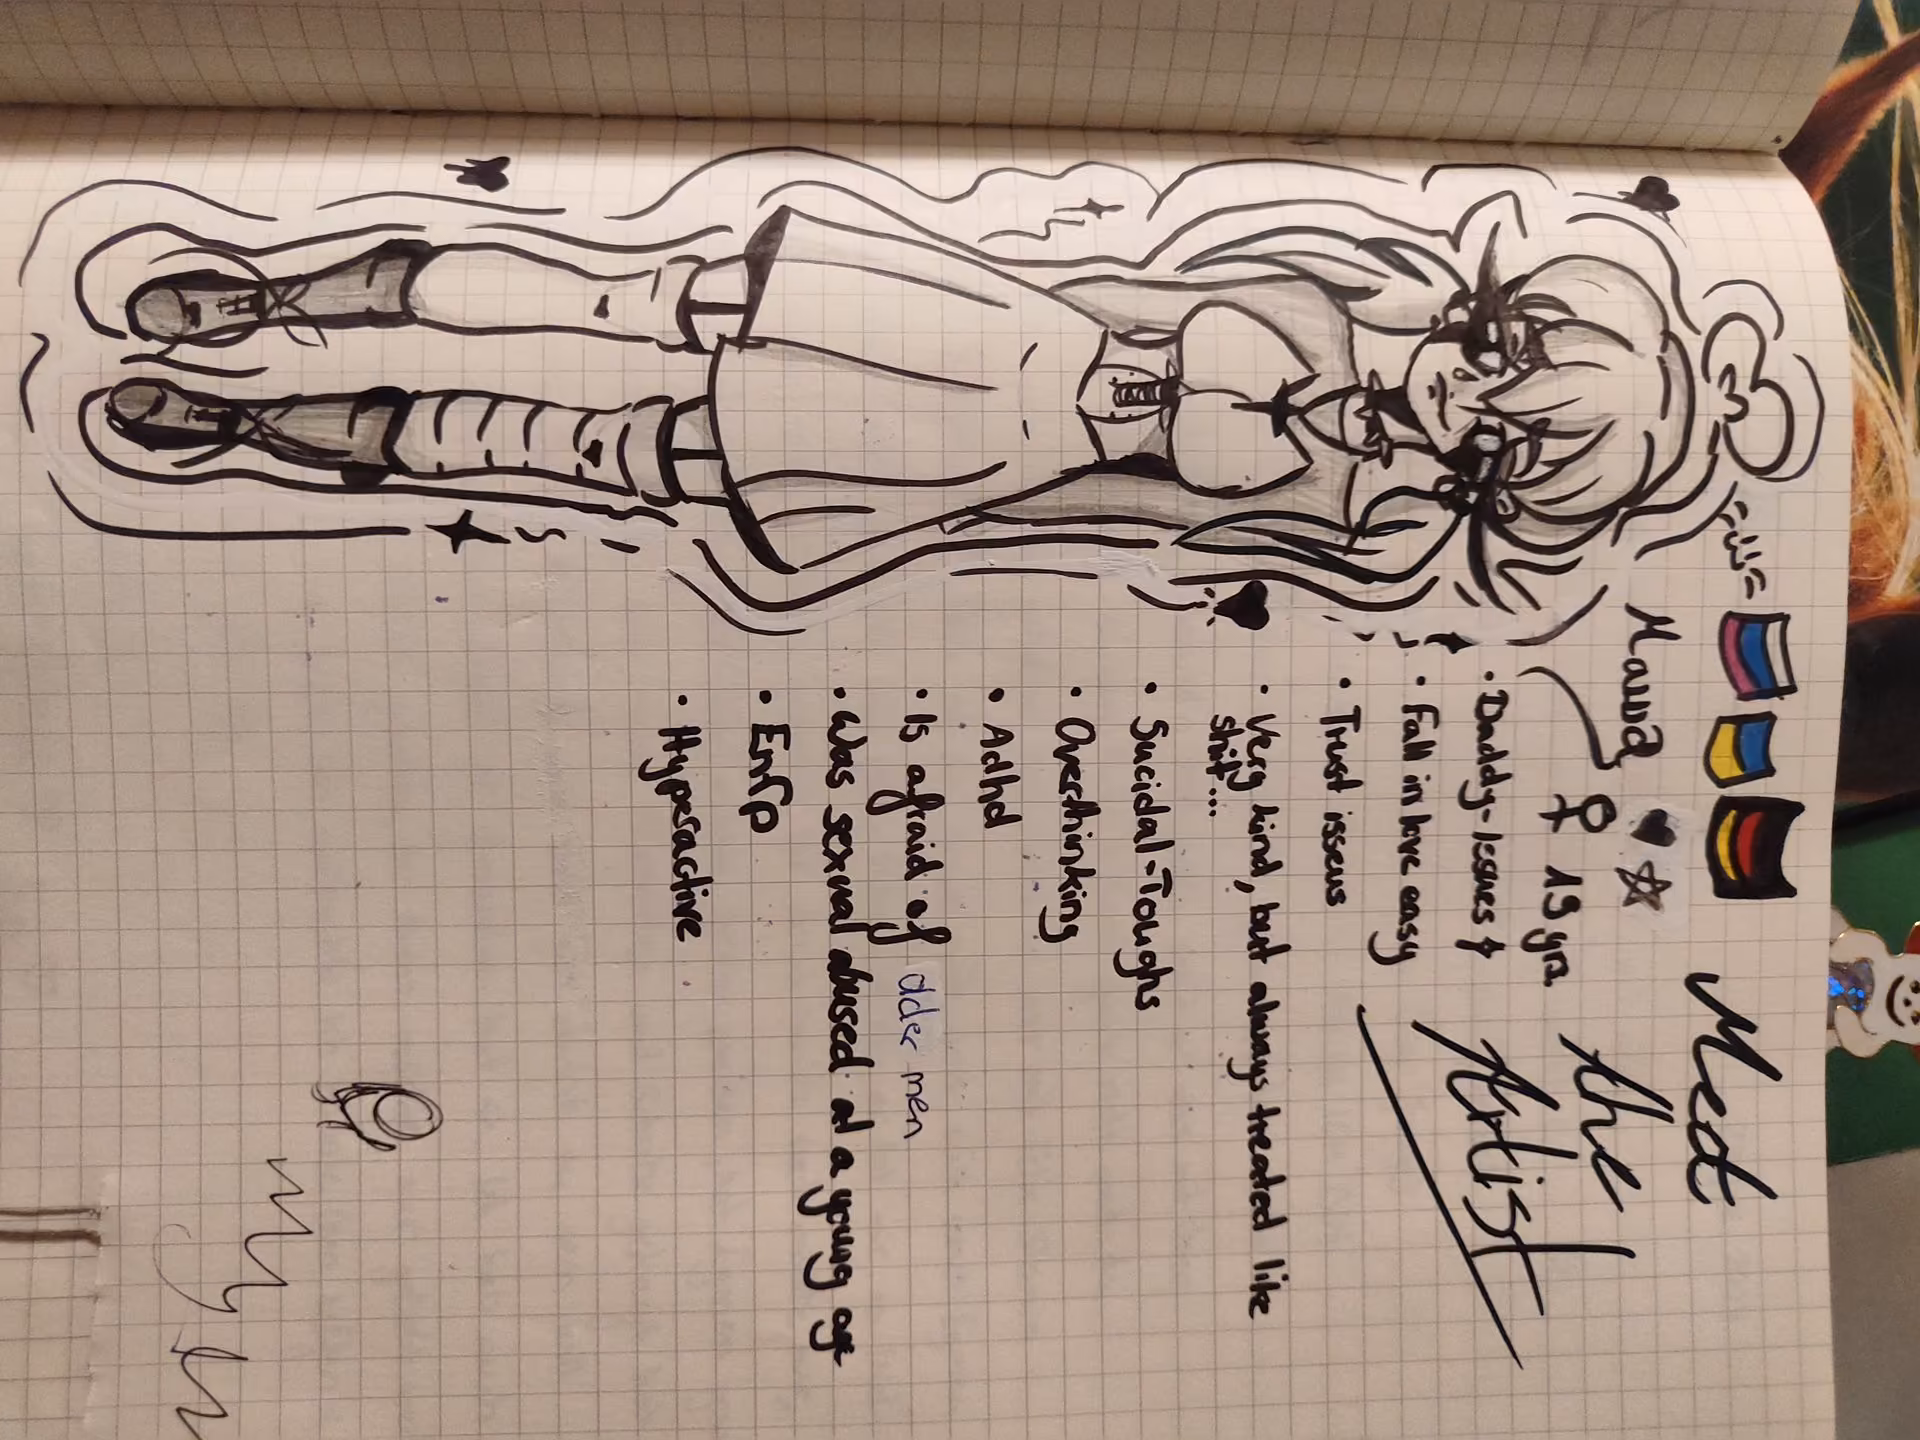 Meet
the
Artist
Mawa
♀ 19 yrs.
• Daddy-Issues
• Fall in love easy
• Trust isseus
• Very kind, but always treated like
shit...
• Suicidal-Toughs
• Overthinking
• Adhd
• Is afraid of older men
• Was sexual abused at a young age
• Enfp
• Hyperactive